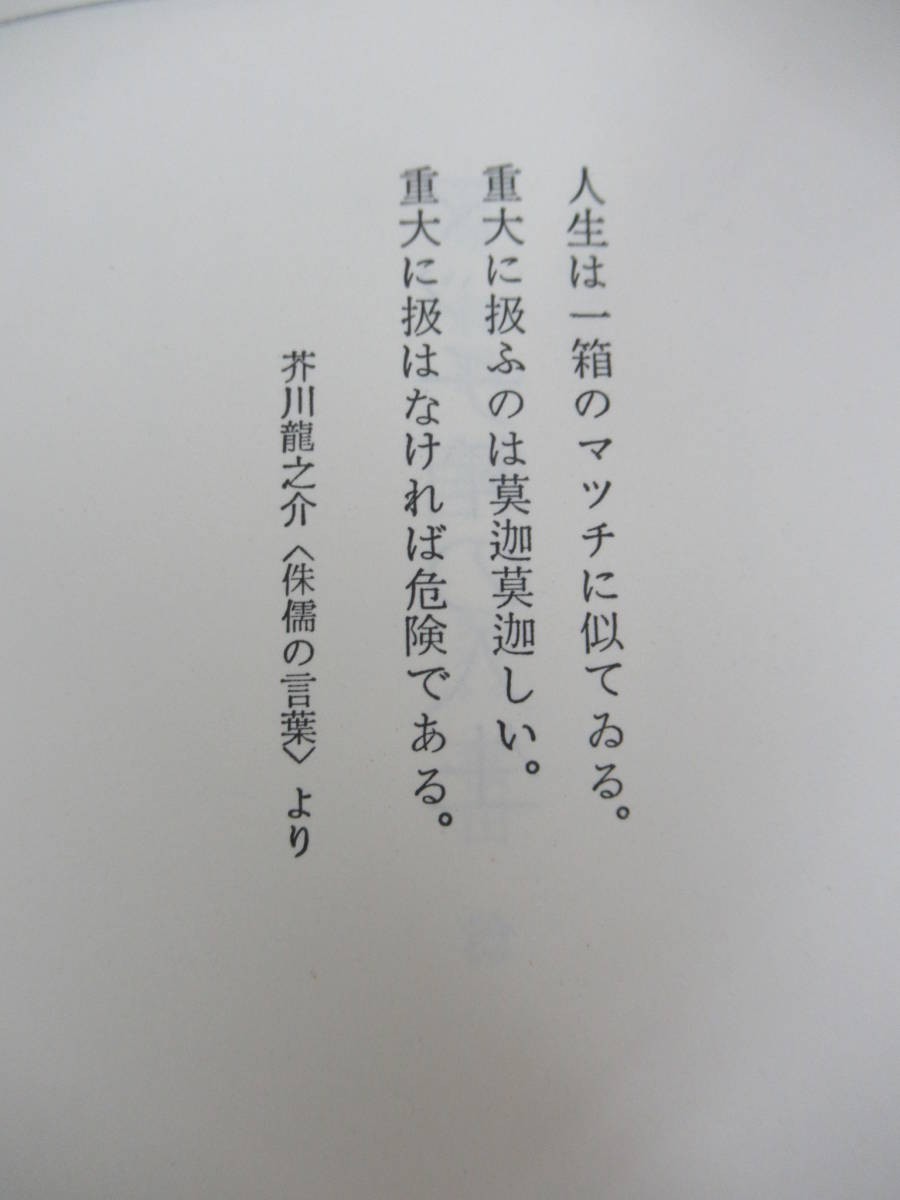 人生は一箱のマツチに似てゐる。
重大に扱ふのは莫迦莫迦しい。
重大に扱はなければ危険である。
芥川龍之介〈侏儒の言葉〉より